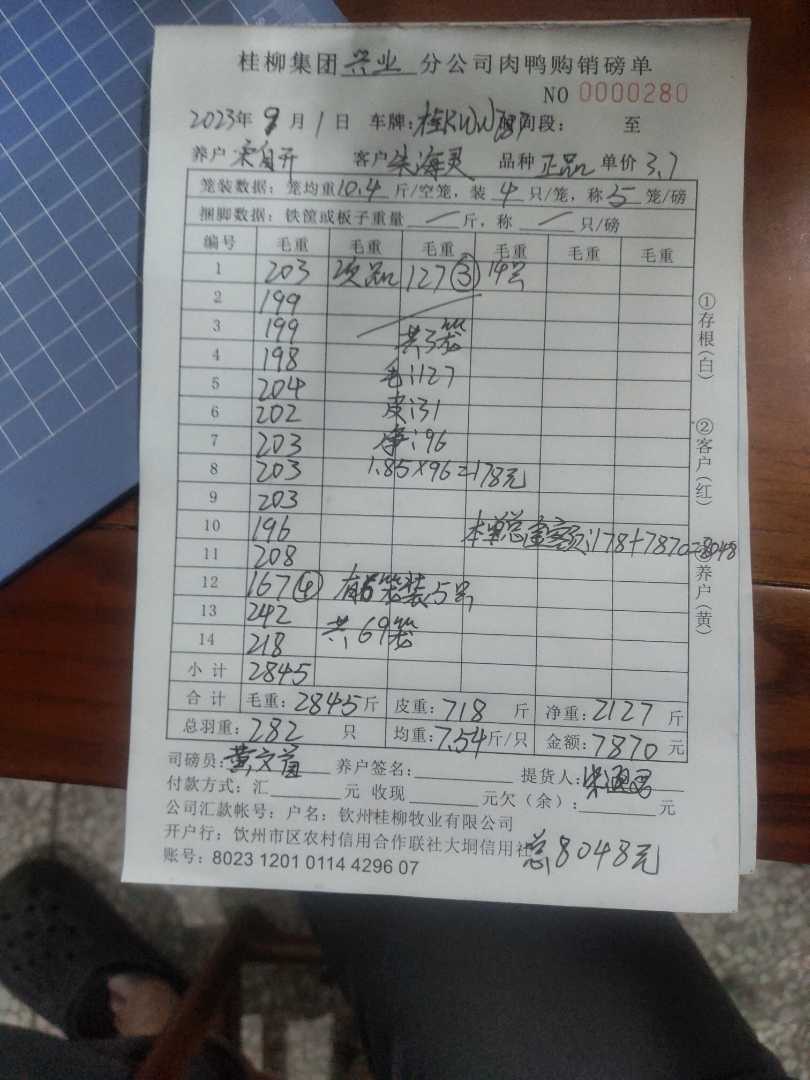 桂柳集团兴业分公司肉鸭购销磅单
NO 0000280
2023年 9月 1日 车牌: 桂KWW 时间段: 至
养户 客户 朱海灵 品种 正品 单价 3.7
笼装数据: 笼均重10.4斤/空笼, 装 4 只/笼, 称 5 笼/磅
捆脚数据: 铁筐或板子重量 — 斤, 称 — 只/磅
编号 毛重 毛重 毛重 毛重 毛重 毛重
1 203 次品 127③ 14只
2 199
3 199 共3笼
4 198 毛:127
5 204 皮:31
6 202 净:96
7 203
8 203 1.85×96=178元
9 203
10 196 本单总金额:178+7870=8048
11 208
12 167④ 有6笼装5只
13 242 共69笼
14 218
小计 2845
合计 毛重: 2845斤 皮重: 718 斤 净重: 2127 斤
总羽重: 282 只 均重: 7.54斤/只 金额: 7870 元
司磅员: 黄文 养户签名: 提货人:
付款方式: 汇 元 收现 元欠(余): 元
公司汇款帐号: 户名: 钦州桂柳牧业有限公司
开户行: 钦州市区农村信用合作联社大垌信用社
总8048元
账号: 8023 1201 0114 4296 07
①存根(白)
②客户(红)
养户(黄)